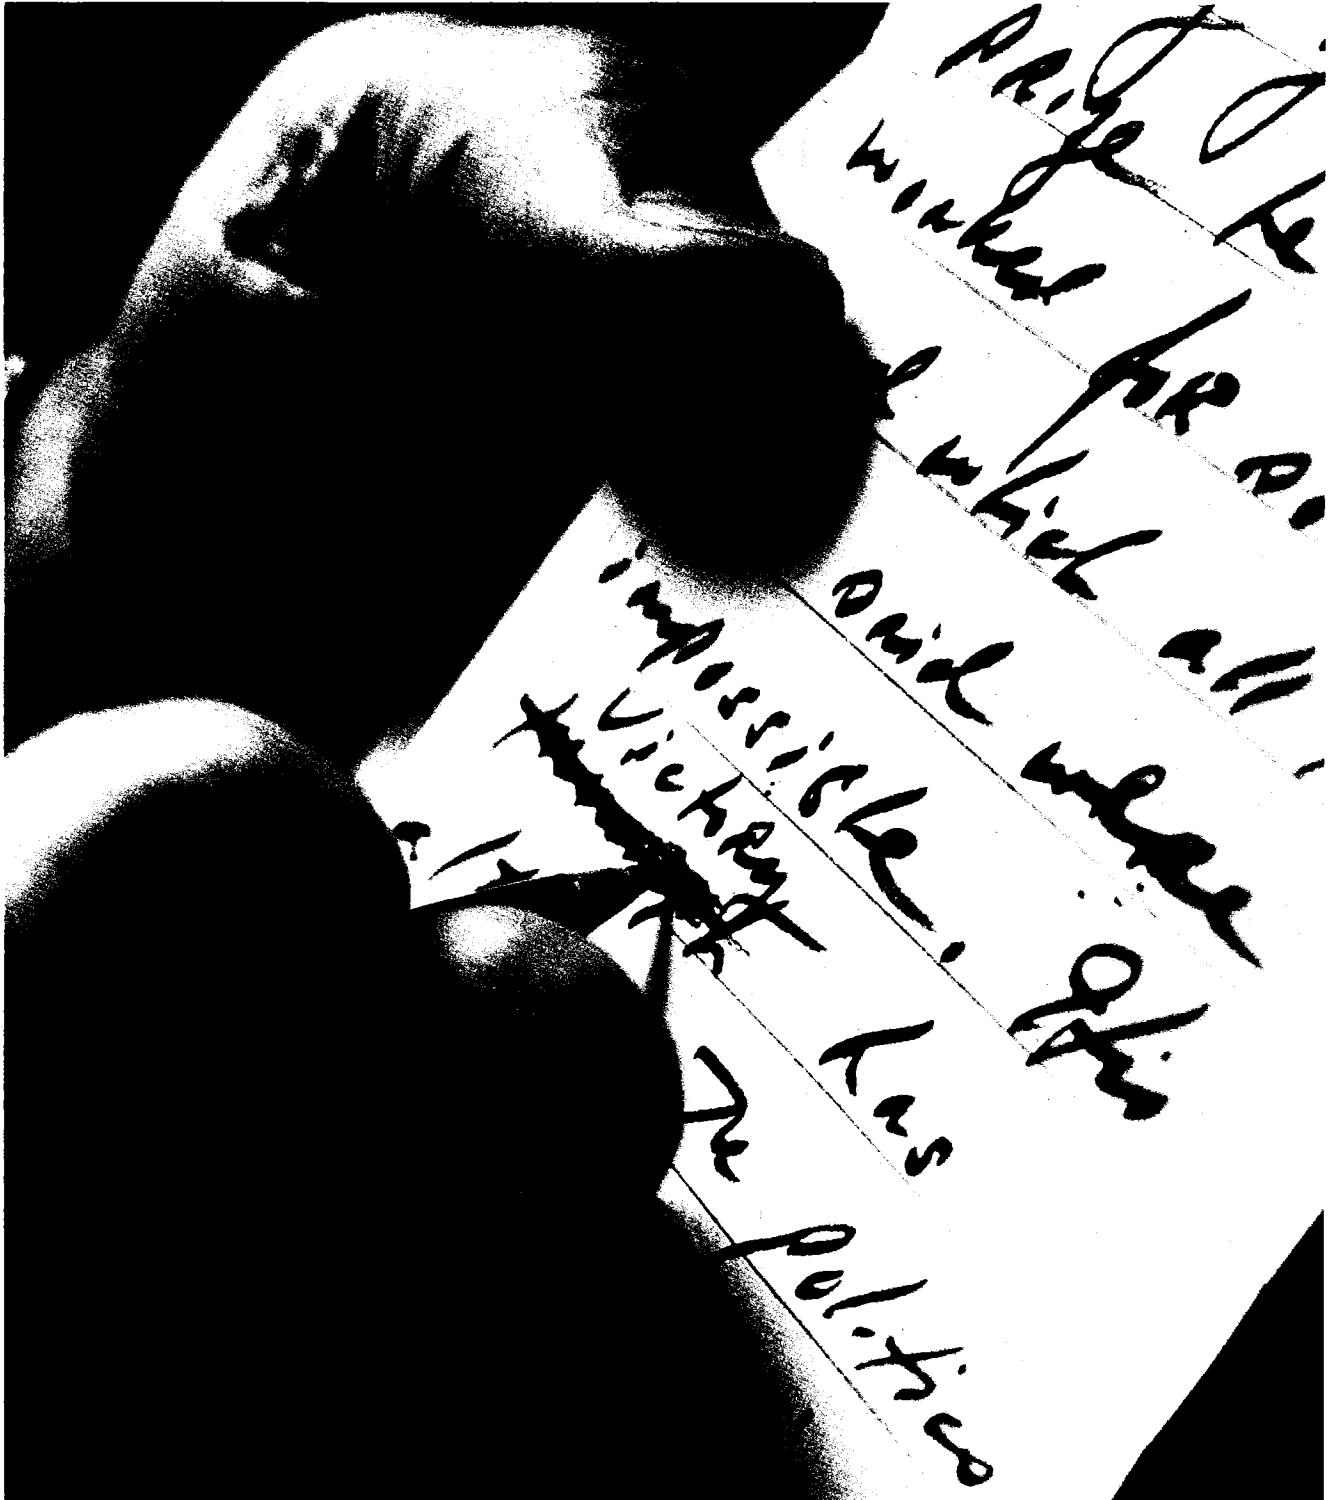 prize he
worked for so
which all
said where
impossible. This
victory
has
The
politics